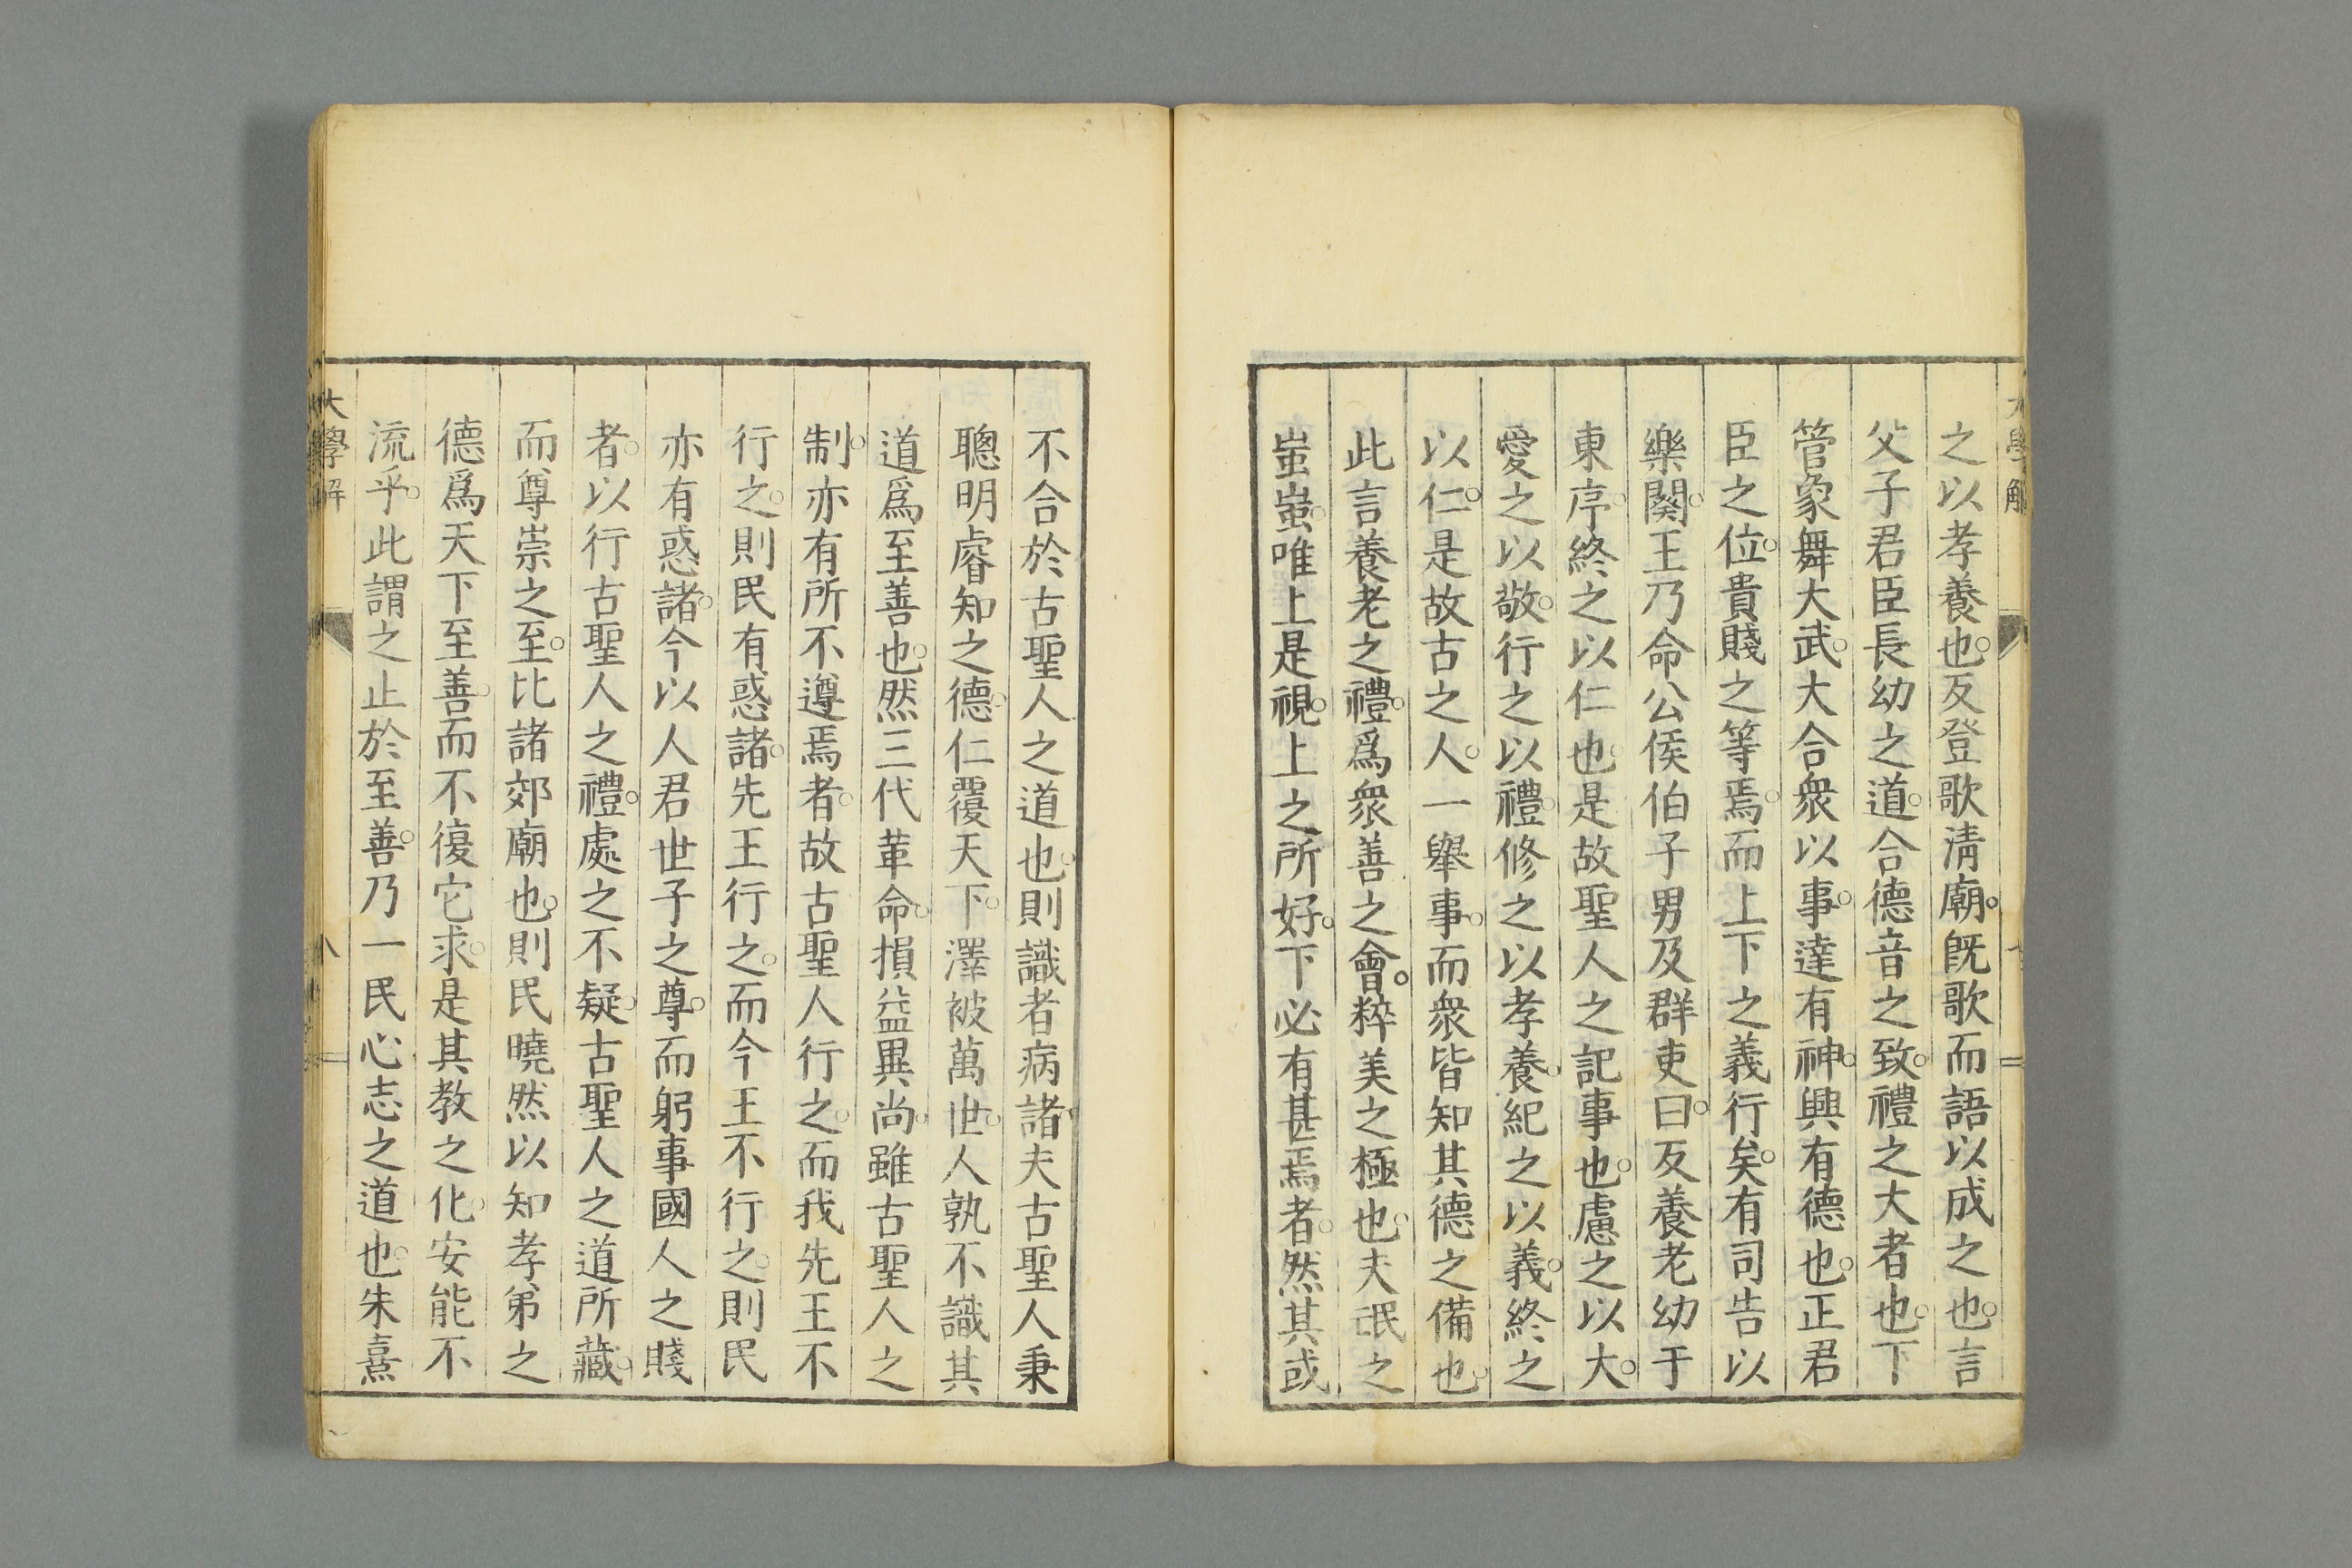 之以孝養也。反登歌淸廟。旣歌而語以成之也。言
父子君臣長幼之道。合德音之致。禮之大者也。下
管象舞大武。大合衆以事。達有神。興有德也。正君
臣之位。貴賤之等焉。而上下之義行矣。有司告以
樂闋。王乃命公侯伯子男及群吏曰。反養老幼于
東序。終之以仁也。是故聖人之記事也。慮之以大。
愛之以敬。行之以禮。修之以孝養。紀之以義。終之
以仁。是故古之人。一擧事。而衆皆知其德之備也。
此言養老之禮。爲衆善之會。粹美之極也。夫民之
蚩蚩。唯上是視。上之所好。下必有甚焉者。然其或
不合於古聖人之道也。則識者病諸。夫古聖人秉
聰明睿知之德。仁覆天下。澤被萬世。人孰不識其
道爲至善也。然三代革命。損益異尚。雖古聖人之
制。亦有所不遵焉者。故古聖人行之。而我先王不
行之。則民有惑諸。先王行之。而今王不行之。則民
亦有惑諸。今以人君世子之尊。而躬事國人之賤
者。以行古聖人之禮。處之不疑。古聖人之道所藏。
而尊崇之至。比諸郊廟也。則民曉然以知孝弟之
德爲天下至善。而不復它求。是其教之化。安能不
流乎。此謂之止於至善。乃一民心志之道也。朱熹
大學解
八